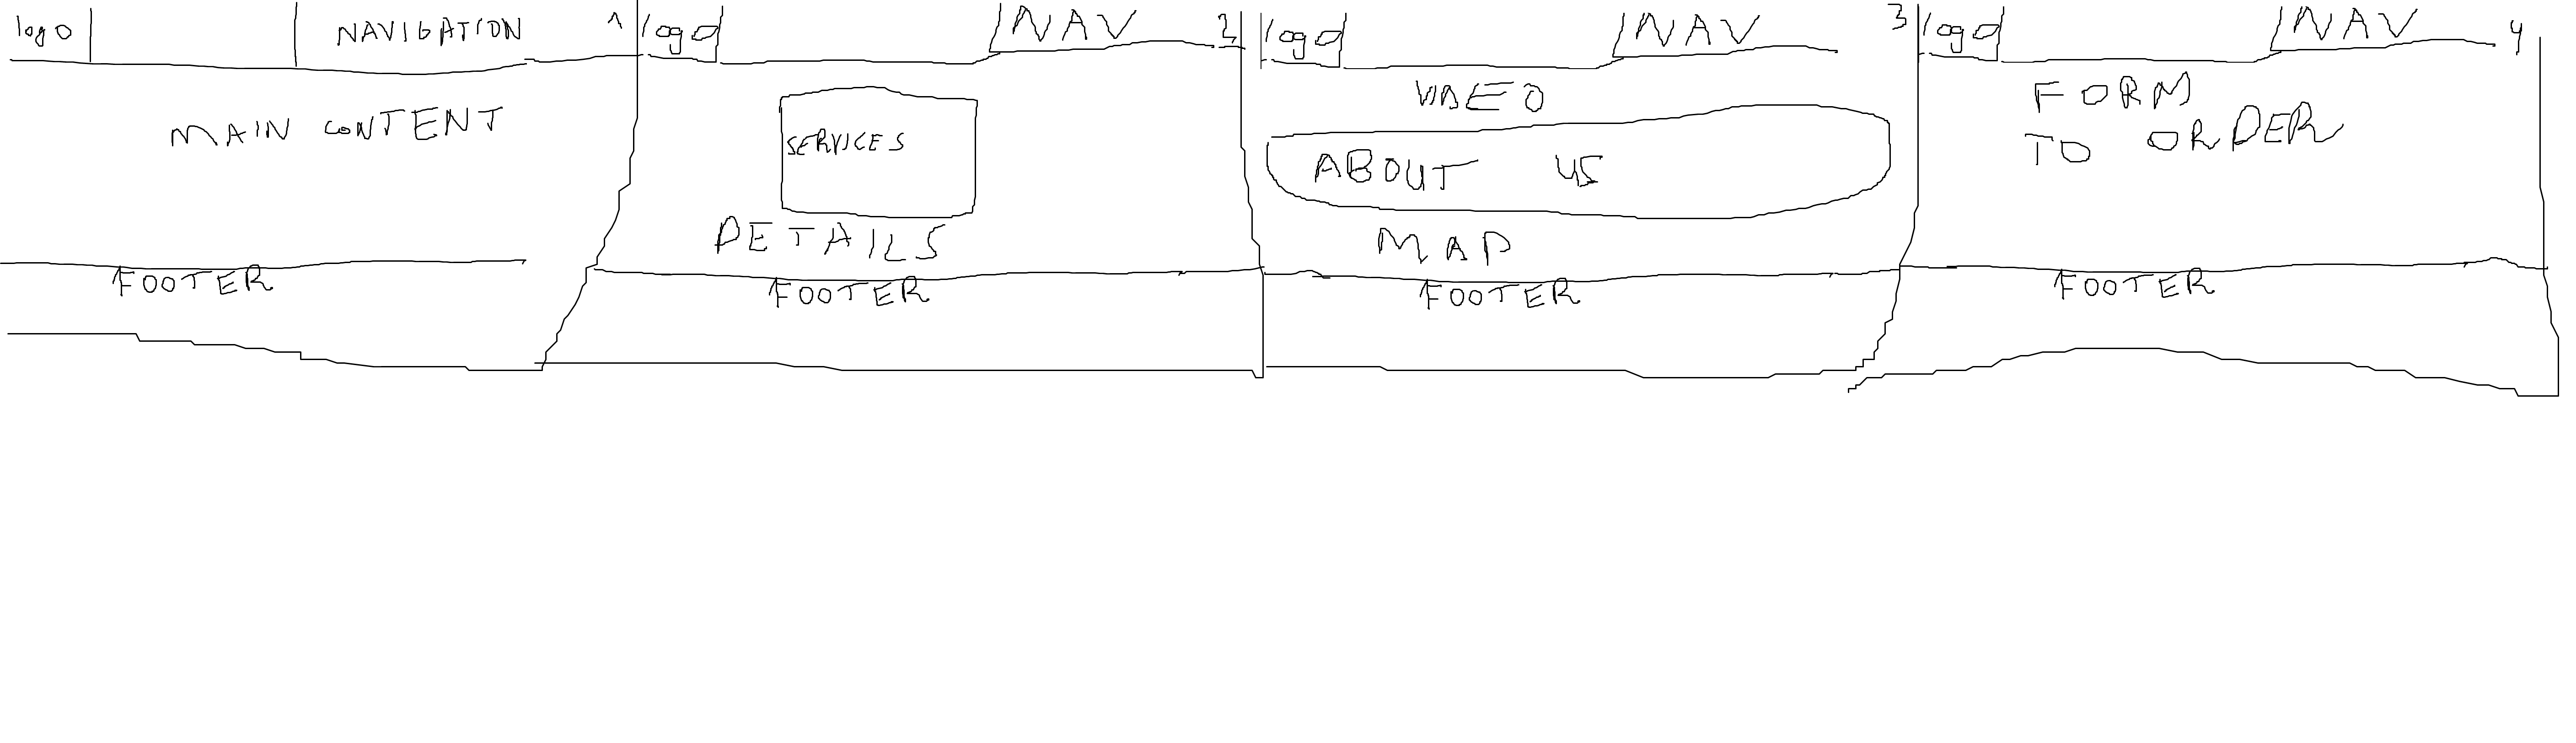 logo NAVIGATION 1
MAIN CONTENT
FOOTER
logo NAV 2
SERVICES
DETAILS
FOOTER
logo NAV 3
VIDEO
ABOUT US
MAP
FOOTER
logo NAV 4
FORM
TO ORDER
FOOTER